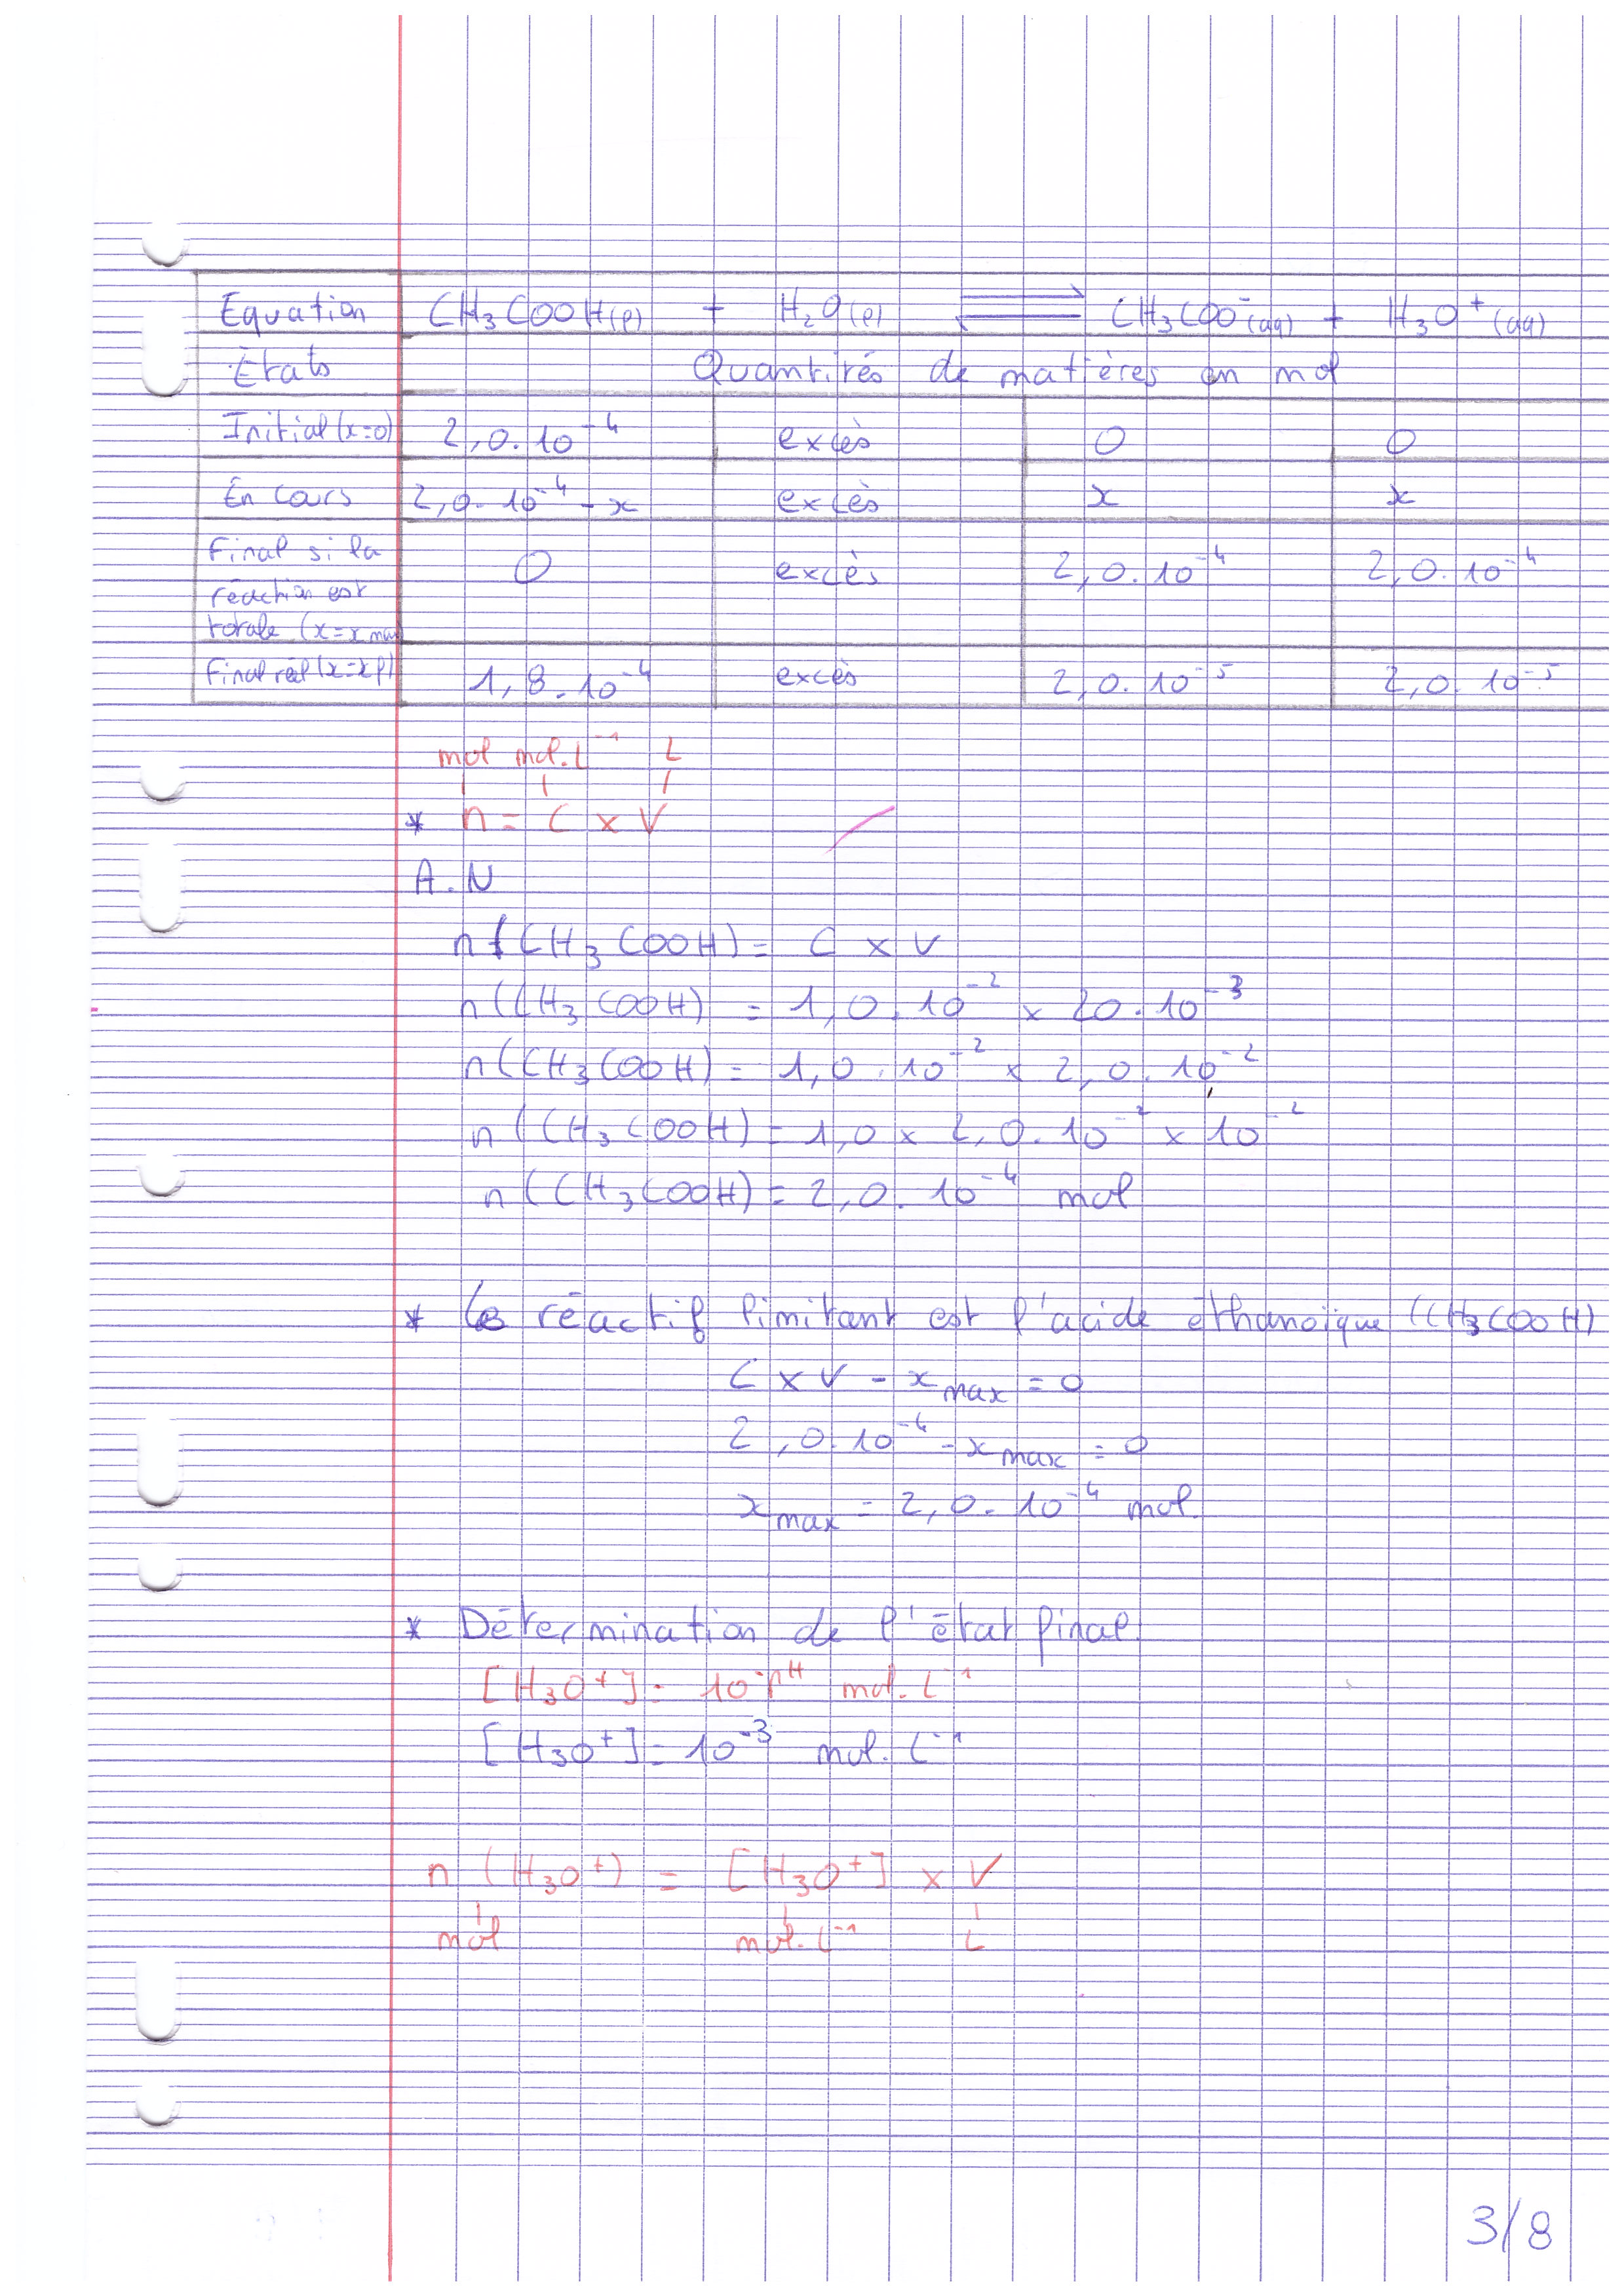 Equation CH₃COOH(l) + H₂O(l) ⇌ CH₃COO⁻(aq) + H₃O⁺(aq)
États Quantités de matières en mol
Initial (x=0) 2,0.10⁻⁴ excès 0 0
En cours 2,0.10⁻⁴ - x excès x x
Final si la réaction est totale (x=x max) 0 excès 2,0.10⁻⁴ 2,0.10⁻⁴
Final réel (x=xf) 1,8.10⁻⁴ excès 2,0.10⁻⁵ 2,0.10⁻⁵
mol mol.L⁻¹ L
* n = C x V
A.N
n (CH₃COOH) = C x V
n (CH₃COOH) = 1,0.10⁻² x 20.10⁻³
n (CH₃COOH) = 1,0.10⁻² x 2,0.10⁻²
n (CH₃COOH) = 1,0 x 2,0.10⁻² x 10⁻²
n (CH₃COOH) = 2,0.10⁻⁴ mol
* Le réactif limitant est l'acide éthanoïque (CH₃COOH)
C x V - x max = 0
2,0.10⁻⁴ - x max = 0
x max = 2,0.10⁻⁴ mol.
* Détermination de l'état final.
[H₃O⁺] = 10⁻ᵖᴴ mol.L⁻¹
[H₃O⁺] = 10⁻³ mol.L⁻¹
n (H₃O⁺) = [H₃O⁺] x V
mol mol.L⁻¹ L
3/8